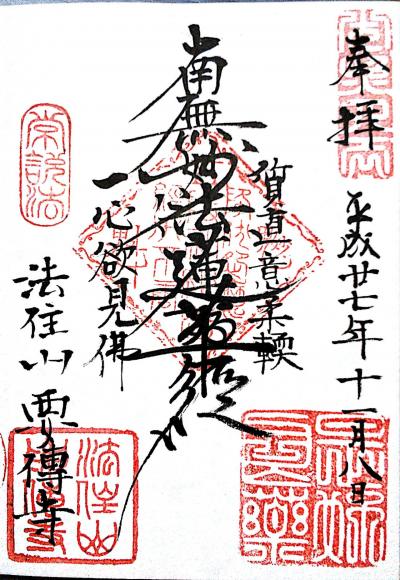 奉拝
平成廿七年十一月八日
質直意柔輭
南無妙法蓮華経
一心欲見佛
常説法
法住山 要傳寺
法住山